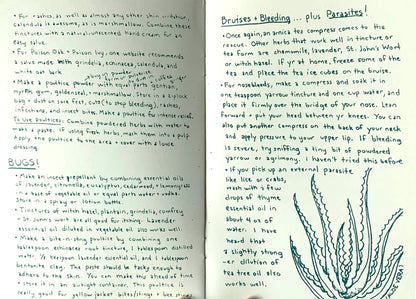 • For rashes, as well as almost any other skin irritator,
calendula is awesome, as is marshmallow. Combine these
tinctures with a natural unscented hand cream for an
easy salve.
• For Poison Oak + Poison Ivy, one website recommends
a salve made with grindelia, echinacea, calendula, and
white oak bark
• Make a poultice powder with equal parts gentian,
myrrh gum, goldenseal, + marshmallow. Store in a ziplock
bag + dust on sore feet, cuts (to stop bleeding), rashes,
infections, and insect bites. Make a poultice for intense cases.
To use poultices: Combine powdered herbs with water to
make a paste. If using fresh herbs, mash them into a pulp.
Apply the poultice to the area + cover with a loose
dressing.
BUGS!
• Make an insect repellant by combining essential oils
of lavender, citronella, eucalyptus, cedarwood, + lemongrass
in a base of vegetable oil or equal parts water + vodka.
Store in a spray or lotion bottle.
• Tinctures of witch hazel, plantain, grindelia, comfrey
+ St. John's wort are all good for itching. Lavender
essential oil diluted in vegetable oil also works well.
• Make a bite-n-sting poultice by combining one
tablespoon echinacea root tincture, 1 tablespoon distilled
water, 1/8 teaspoon lavender essential oil, and 1 tablespoon
bentonite clay. The paste should be tacky enough to
adhere to the skin. You can make this ahead of time
+ store it in an airtight container. This poultice is
really good for yellow jacket bites/stings + bee stings
Bruises + Bleeding ... plus Parasites!
• Once again, an arnica tea compress comes to the
rescue. Other herbs that work well in tincture or
tea form are chamomile, lavender, St. John's Wort
or witch hazel. If yr at home, freeze some of the
tea and place the tea ice cubes on the bruise.
• For nosebleeds, make a compress and soak it in
one teaspoon yarrow tincture and one cup water, and
place it firmly over the bridge of your nose. Lean
forward + put your head between yr knees. You can
also put another compress on the back of your neck
and apply pressure to your upper lip. If bleeding
is severe, try sniffing a tiny bit of powdered
yarrow or agrimony. I haven't tried this before
• If you pick up an external parasite
like lice or crabs,
wash with a few
drops of thyme
essential oil in
about 4 oz of
water. I have
heard that
a slightly strong-
er dilution of
tea tree oil also
works well.
ALOE VERA